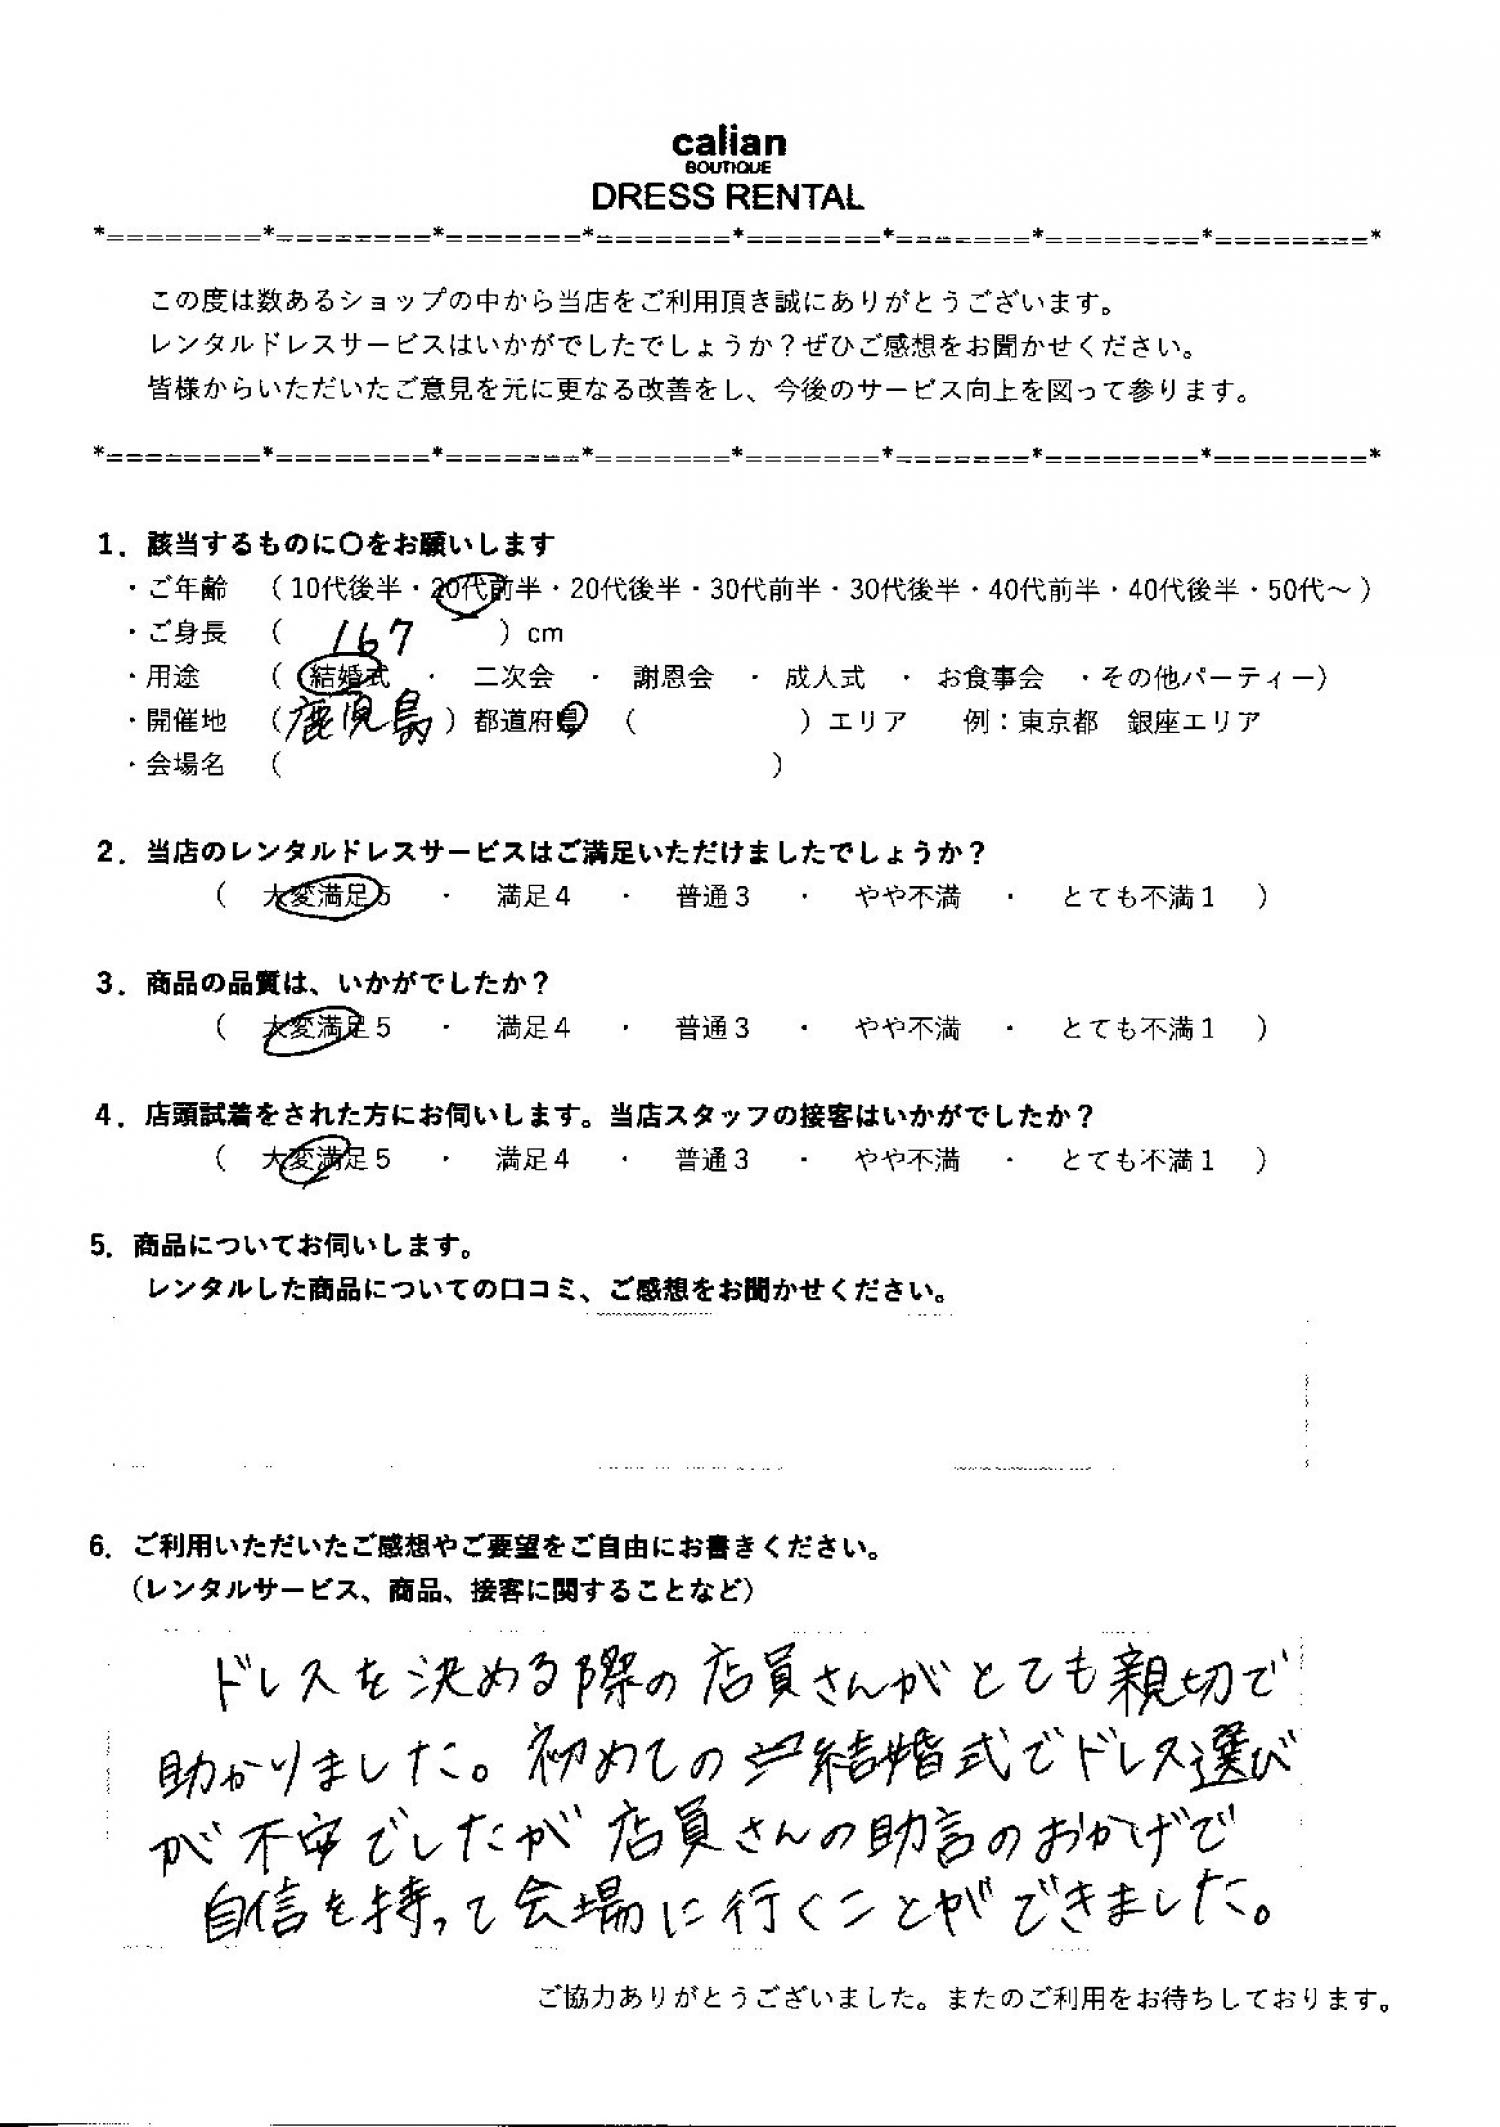 calian
BOUTIQUE
DRESS RENTAL
*========*========*=======*=======*=======*=======*========*========*
この度は数あるショップの中から当店をご利用頂き誠にありがとうございます。
レンタルドレスサービスはいかがでしたでしょうか？ぜひご感想をお聞かせください。
皆様からいただいたご意見を元に更なる改善をし、今後のサービス向上を図って参ります。
*========*========*=======*=======*=======*=======*========*========*
1．該当するものに〇をお願いします
・ご年齢 （10代後半・20代前半・20代後半・30代前半・30代後半・40代前半・40代後半・50代～）
・ご身長 （ 167 ）cm
・用途 （ 結婚式 ・ 二次会 ・ 謝恩会 ・ 成人式 ・ お食事会 ・その他パーティー）
・開催地 （鹿児島）都道府県 （ ）エリア 例：東京都 銀座エリア
・会場名 （ ）
2．当店のレンタルドレスサービスはご満足いただけましたでしょうか？
（ 大変満足5 ・ 満足4 ・ 普通3 ・ やや不満 ・ とても不満1 ）
3．商品の品質は、いかがでしたか？
（ 大変満足5 ・ 満足4 ・ 普通3 ・ やや不満 ・ とても不満1 ）
4．店頭試着をされた方にお伺いします。当店スタッフの接客はいかがでしたか？
（ 大変満足5 ・ 満足4 ・ 普通3 ・ やや不満 ・ とても不満1 ）
5．商品についてお伺いします。
レンタルした商品についての口コミ、ご感想をお聞かせください。
6．ご利用いただいたご感想やご要望をご自由にお書きください。
（レンタルサービス、商品、接客に関することなど）
ドレスを決める際の店員さんがとても親切で
助かりました。初めての結婚式でドレス選び
が不安でしたが店員さんの助言のおかげで
自信を持って会場に行くことができました。
ご協力ありがとうございました。またのご利用をお待ちしております。